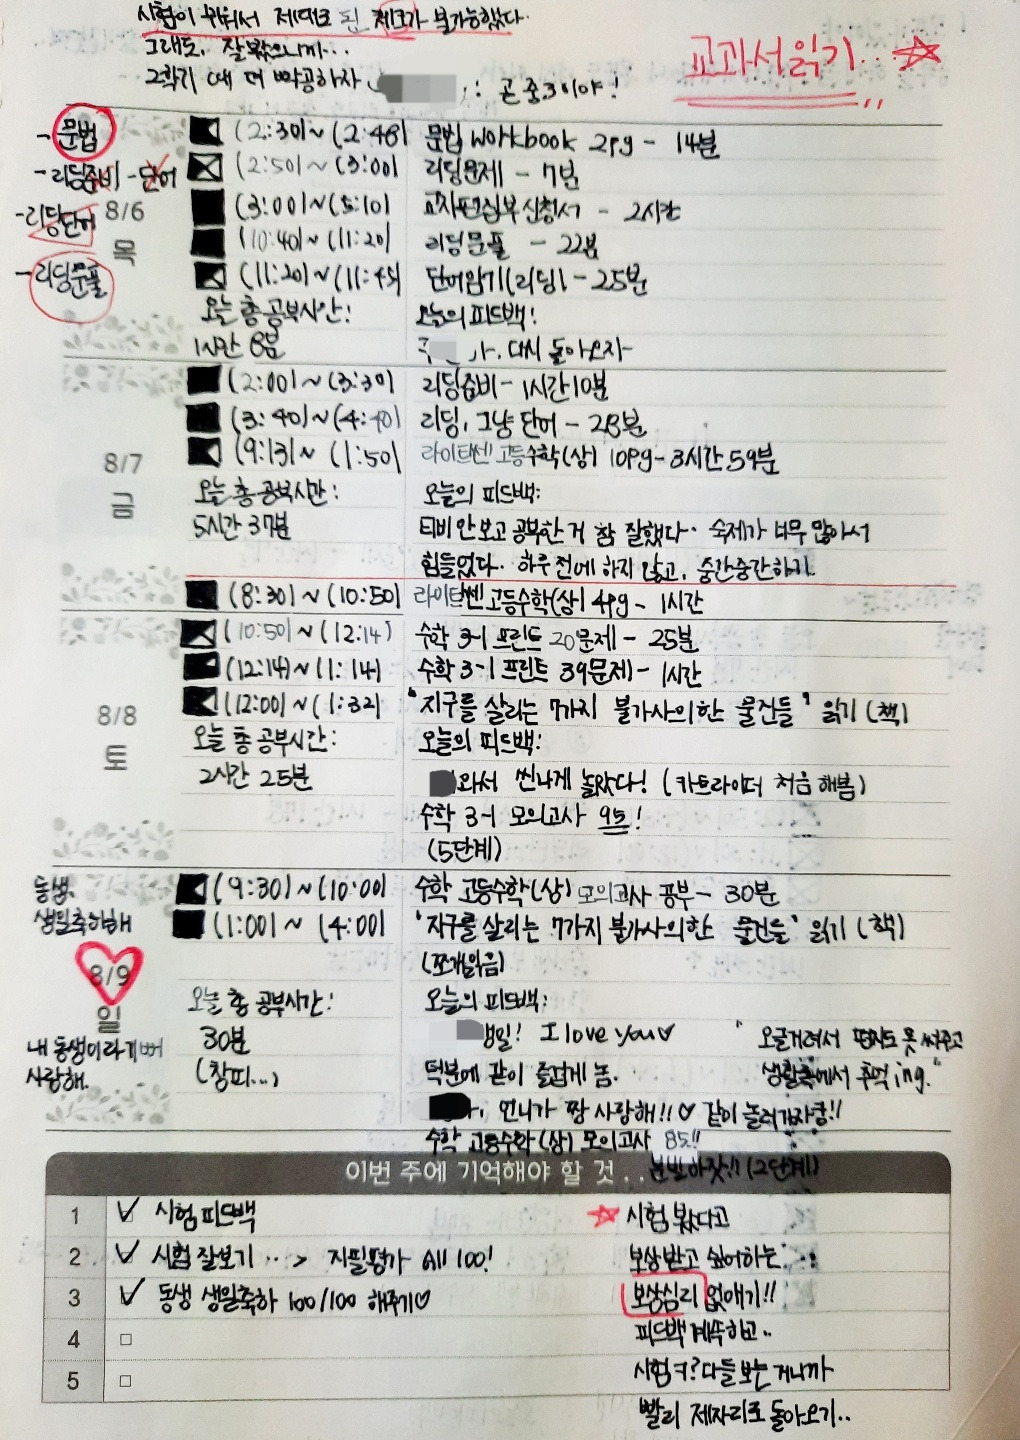 시험이 쉬워서 제대로 된 체크가 불가능했다.
그래도, 잘봤으니까...
2학기 때 더 빡공하자
곧 중3이야!
교과서읽기..
- 문법
- 리딩준비 - 단어
- 리딩단어
- 리딩문풀
8/6
목
(2:30)~(2:48) 문법 workbook 2pg - 14분
(2:50)~(3:00) 리딩문제 - 7분
(3:00)~(5:10) 신청서 - 2시간
(10:40)~(11:20) 리딩문풀 - 22분
(11:20)~(11:45) 단어암기(리딩) - 25분
오늘 총 공부시간! 오늘의 피드백!
1시간 8분 다시 돌아오자~
8/7
금
(2:00)~(3:30) 리딩준비 - 1시간10분
(3:40)~(4:40) 리딩, 그냥 단어 - 28분
(9:13)~(1:50) 라이트쎈 고등수학(상) 10pg - 3시간 59분
오늘 총 공부시간: 오늘의 피드백:
5시간 37분 티비 안보고 공부한 거 참 잘했다. 숙제가 너무 많아서
힘들었다. 하루 전에 하지 않고, 중간중간하기.
(8:30)~(10:50) 라이트쎈 고등수학(상) 4pg - 1시간
8/8
토
(10:50)~(12:14) 수학 3-1 프린트 20문제 - 25분
(12:14)~(1:14) 수학 3-1 프린트 39문제 - 1시간
(12:00)~(1:32) "지구를 살리는 7가지 불가사의한 물건들" 읽기 (책)
오늘 총 공부시간: 오늘의 피드백:
2시간 25분 와서 씬나게 놀았다! (카트라이더 처음 해봄)
수학 3-1 모의고사 95!
(5단계)
동생.
생일축하해
8/9
일
내 동생이라 기뻐
사랑해.
(9:30)~(10:00) 수학 고등수학(상) 모의고사 공부 - 30분
(1:00)~(4:00) '지구를 살리는 7가지 불가사의한 물건들' 읽기 (책)
(쪼개읽음)
오늘 총 공부시간! 오늘의 피드백:
30분 생일! I love you♡
(창피...) 덕분에 같이 즐겁게 놈.
" 오글거려서 편지도 못 써주고
생활속에서 추억 ing."
언니가 짱 사랑해!!♡ 같이 놀러가자궁!!
수학 고등수학(상) 모의고사 85!!
분발하잣!! (2단계)
이번 주에 기억해야 할 것..
1 시험피드백
2 시험 잘보기 ··> 지필평가 All 100!
3 동생 생일축하 100/100 해주기♡
4
5
시험 봤다고
보상받고 싶어하는..
보상심리 없애기!!
피드백 계속하고..
시험ㅋ? 다들 보는 거니까
빨리 제자리로 돌아오기..